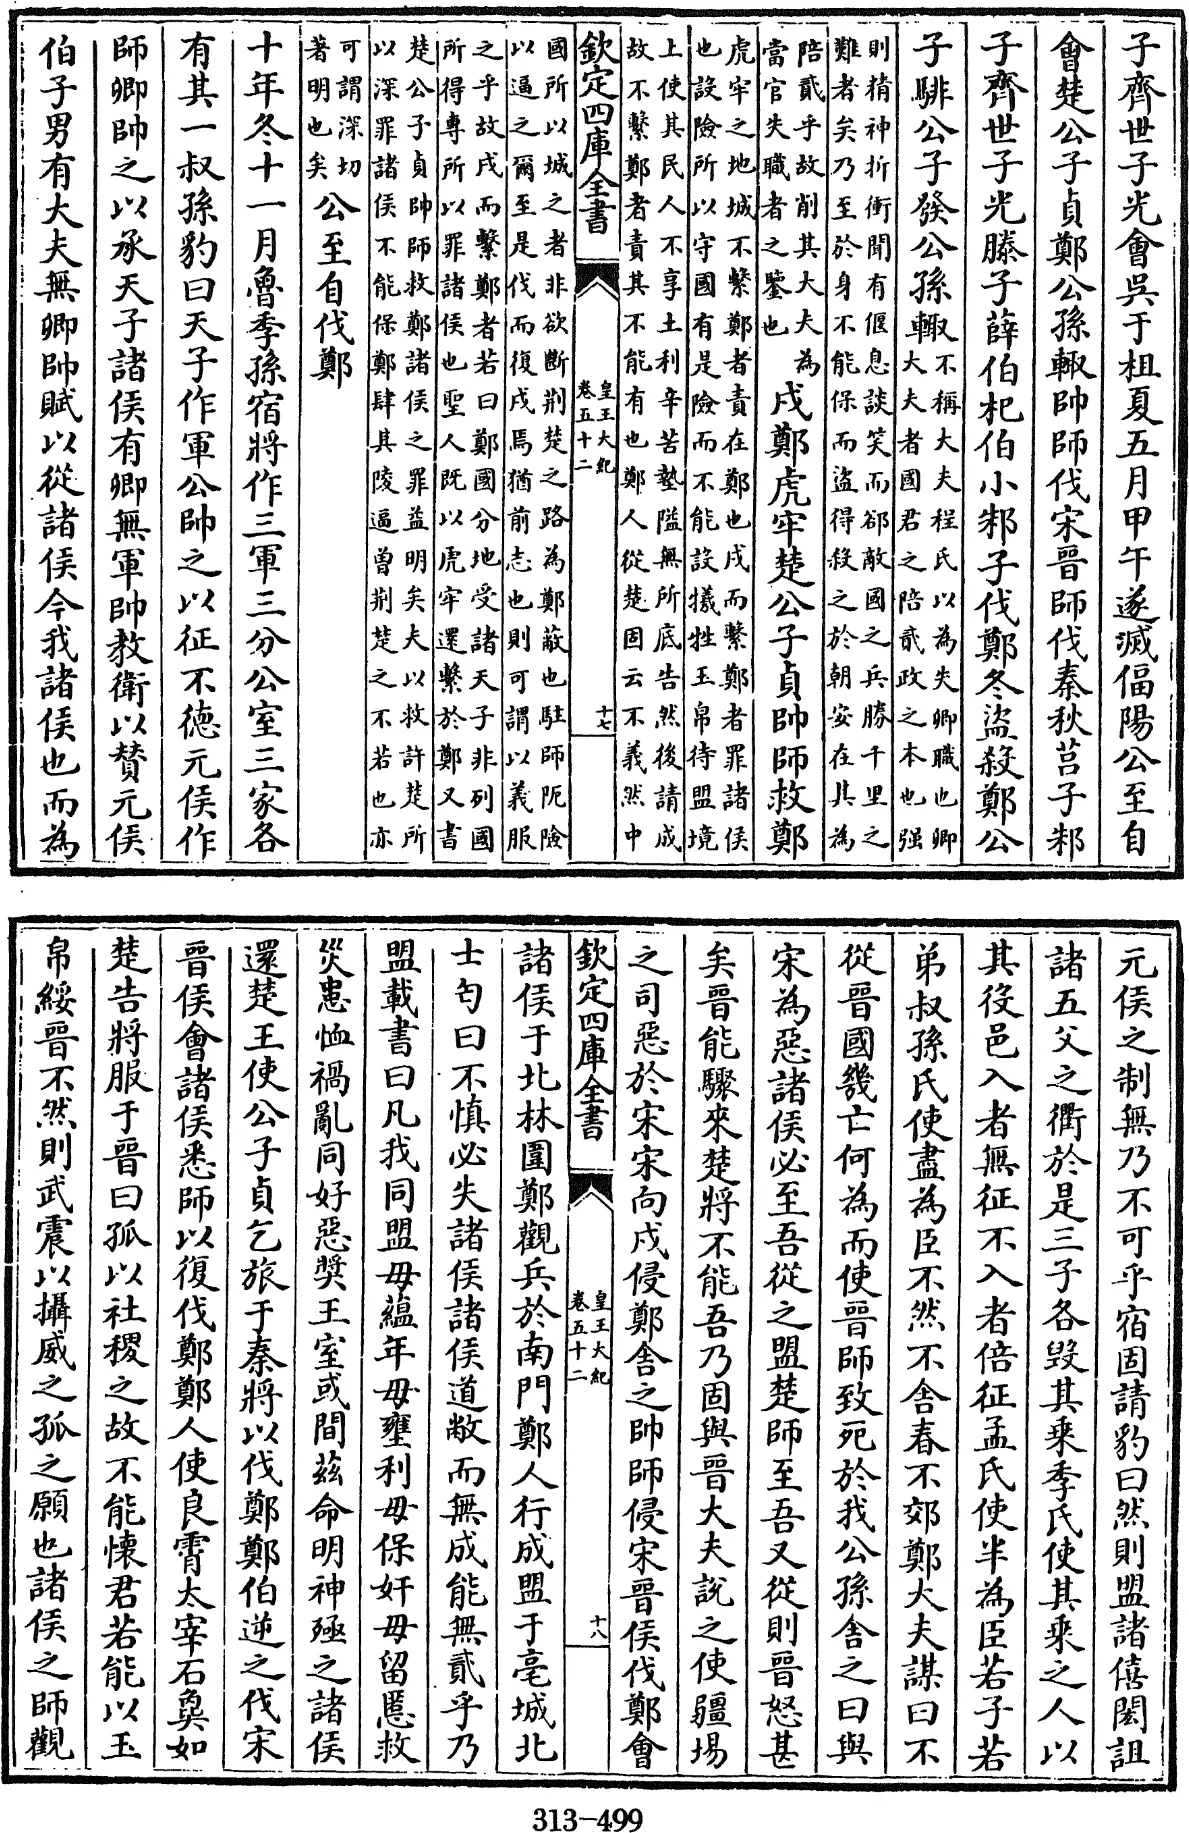 子齊世子光會吳于柤夏五月甲午遂滅偪陽公至自
會楚公子貞鄭公孫輙帥師伐宋晉師伐秦秋莒子邾
子齊世子光滕子薛伯杞伯小邾子伐鄭冬盜殺鄭公
子騑公子發公孫輙
不稱大夫程氏以為失卿職也卿
大夫者國君之陪貳政之本也强
則精神折衝聞有偃息談笑而郤敵國之兵勝千里之
難者矣乃至於身不能保而盜得殺之於朝安在其為
陪貳乎故削其大夫為
當官失職者之鑒也
戍鄭虎牢楚公子貞帥師救鄭
虎牢之地城不繫鄭者責在鄭也戍而繫鄭者罪諸侯
也設險所以守國有是險而不能設犧牲玉帛待盟境
上使其民人不享土利辛苦墊隘無所底告然後請成
故不繫鄭者責其不能有也鄭人從楚固云不義然中
欽定四庫全書
皇王大紀
卷五十二
十七
國所以城之者非欲斷荆楚之路為鄭蔽也駐師阨險
以逼之爾至是伐而復戍焉猶前志也則可謂以義服
之乎故戍而繫鄭者若曰鄭國分地受諸天子非列國
所得專所以罪諸侯也聖人既以虎牢還繫於鄭又書
楚公子貞帥師救鄭諸侯之罪益明矣夫以救許楚所
以深罪諸侯不能保鄭肆其陵逼曾荆楚之不若也亦
可謂深切
著明也矣
公至自伐鄭
十年冬十一月魯季孫宿將作三軍三分公室三家各
有其一叔孫豹曰天子作軍公帥之以征不德元侯作
師卿帥之以承天子諸侯有卿無軍帥教衛以贊元侯
伯子男有大夫無卿帥賦以從諸侯今我諸侯也而為
元侯之制無乃不可乎宿固請豹曰然則盟諸僖閎詛
諸五父之衢於是三子各毀其乘季氏使其乘之人以
其役邑入者無征不入者倍征孟氏使半為臣若子若
弟叔孫氏使盡為臣不然不舍春不郊鄭大夫謀曰不
從晉國幾亡何為而使晉師致死於我公孫舍之曰與
宋為惡諸侯必至吾從之盟楚師至吾又從則晉怒甚
矣晉能驟來楚將不能吾乃固與晉大夫說之使疆埸
之司惡於宋宋向戍侵鄭舍之帥師侵宋晉侯伐鄭會
欽定四庫全書
皇王大紀
卷五十二
十八
諸侯于北林圍鄭觀兵於南門鄭人行成盟于亳城北
士匄曰不慎必失諸侯諸侯道敝而無成能無貳乎乃
盟載書曰凡我同盟毋蘊年毋壅利毋保奸毋留慝救
災患恤禍亂同好惡奬王室或間茲命明神殛之諸侯
還楚王使公子貞乞旅于秦將以伐鄭鄭伯逆之伐宋
晉侯會諸侯悉師以復伐鄭鄭人使良霄太宰石㚟如
楚告將服于晉曰孤以社稷之故不能懷君若能以玉
帛綏晉不然則武震以攝威之孤之願也諸侯之師觀
313-499